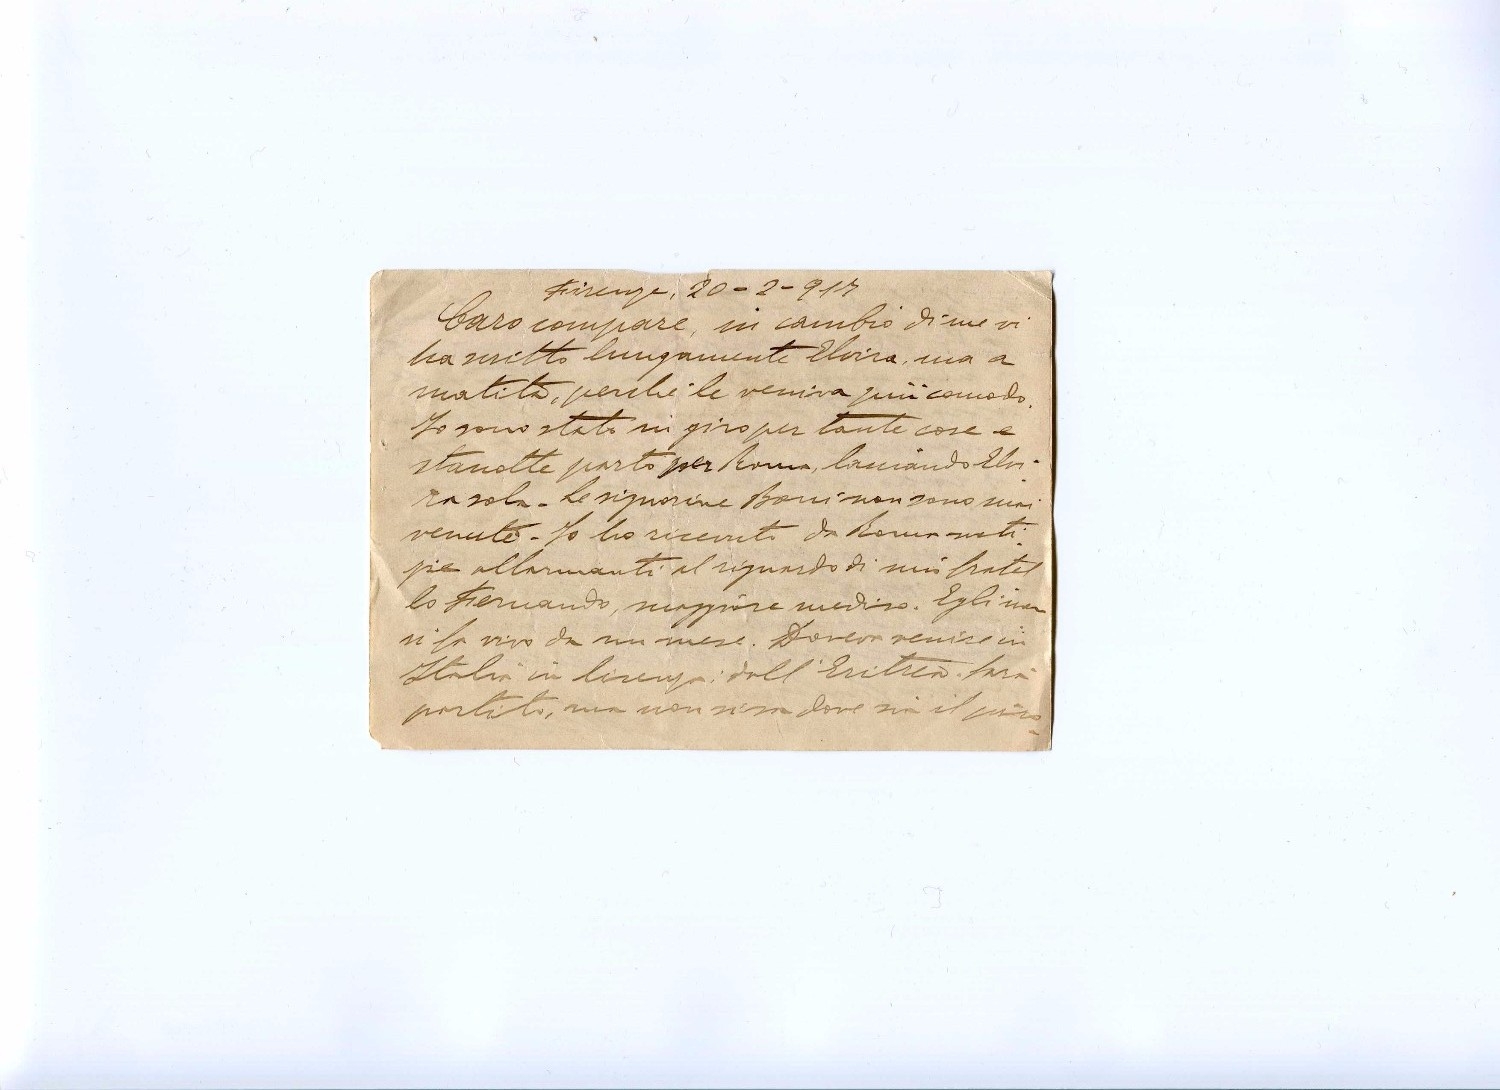 Firenze, 20-2-917
Caro compare, in cambio di me vi
ha scritto lungamente Elvira, ma a
matita, perché le veniva più comodo.
Io sono stato in giro per tante cose e
stanotte parto per Roma, lasciando Elvi-
ra sola - Le signorine non sono mai
venute - Io ho ricevuti da Roma noti-
zie allarmanti al riguardo di mio fratel
lo Fernando, maggiore medico. Egli non
si fa vivo da un mese. Doveva venire in
Italia in licenza, dall'Eritrea. Sarà
partito, ma non si sa dove sia il piro-